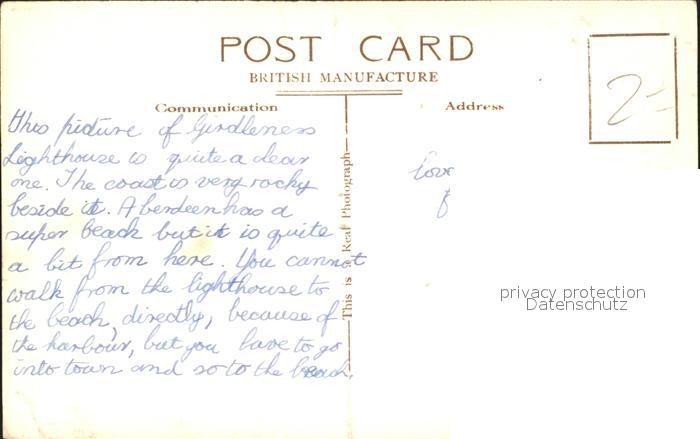 POST CARD
BRITISH MANUFACTURE
Communication
Address
This picture of Girdleness
Lighthouse is quite a clear
one. The coast is very rocky
beside it. Aberdeen has a
super beach but it is quite
a bit from here. You cannot
walk from the lighthouse to
the beach, directly, because of
the harbour, but you have to go
into town and so to the beach.
This is a Real Photograph
love
2/-
privacy protection
Datenschutz